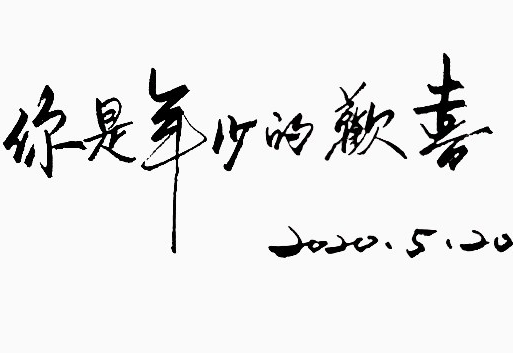 你是年少的歡喜
2020.5.20